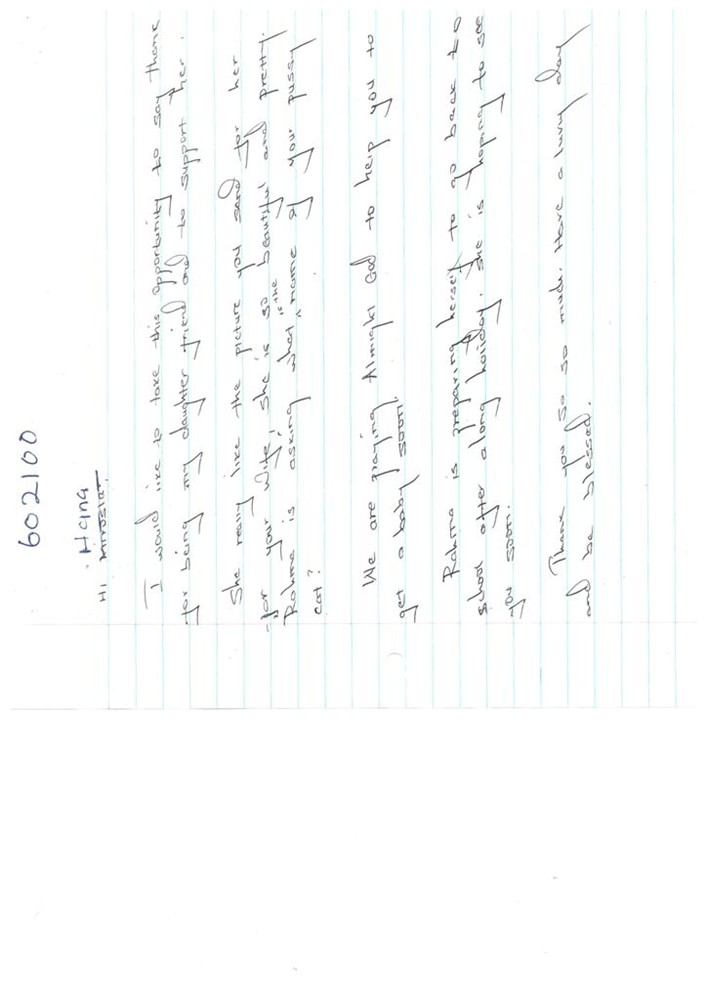 602100
Hi Hana
I would like to take this opportunity to say thank
for being my daughter friend and to support her.
She really like the picture you send for her
for your wife, she is so beautiful and pretty.
Rahma is asking what is the name of your pussy
cat?
We are praying Almight God to help you to
get a baby soon.
Rahma is preparing herself to go back to
school after along holiday, she is hoping to see
you soon.
Thank you so so much. Have a luvry day
and be blessed.